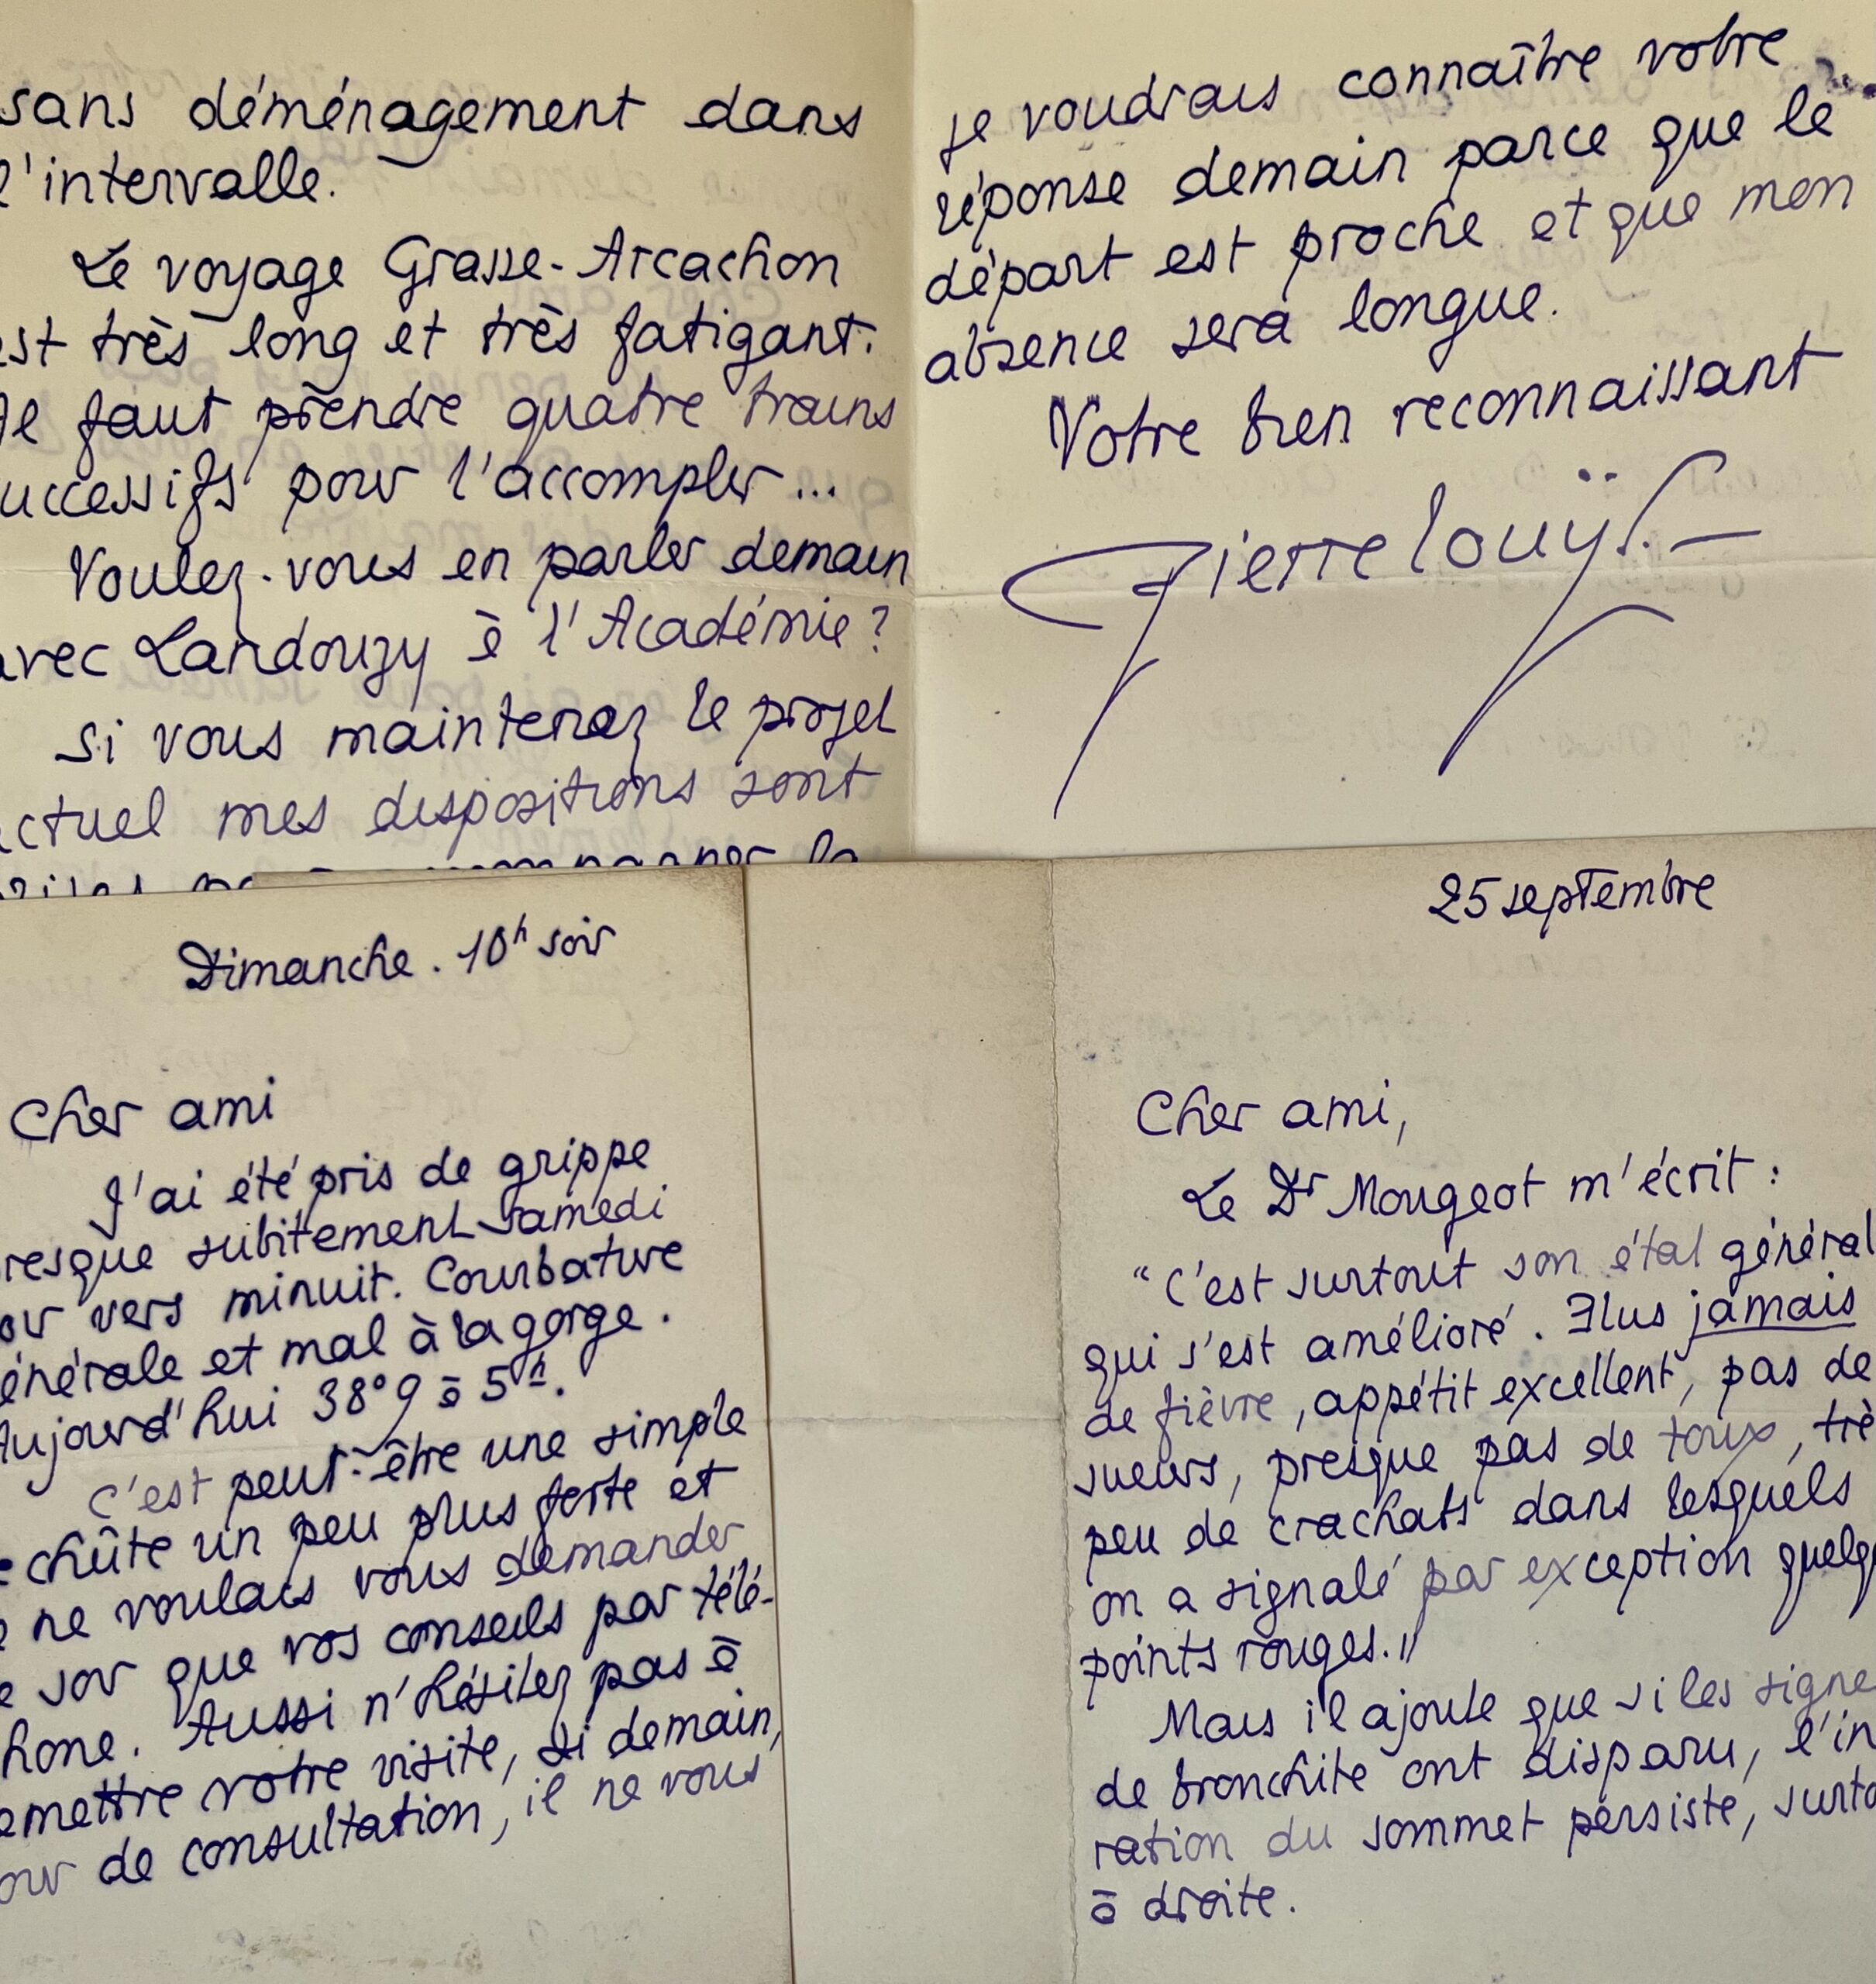 sans déménagement dans
l'intervalle.
Le voyage Grasse-Arcachon
est très long et très fatigant.
Il faut prendre quatre trains
successifs pour l'accomplir...
Voulez-vous en parler demain
avec Landouzy à l'Académie?
Si vous maintenez le projet
actuel mes dispositions sont
je voudrais connaître votre
réponse demain parce que le
départ est proche et que mon
absence sera longue.
Votre bien reconnaissant
Pierre Louÿs.
Dimanche. 10h soir
Cher ami
J'ai été pris de grippe
presque subitement samedi
soir vers minuit. Courbature
générale et mal à la gorge.
Aujourd'hui 38°9 à 5h.
C'est peut-être une simple
rechûte un peu plus forte et
je ne voulais vous demander
ce soir que vos conseils par télé-
phone. Aussi n'hésitez pas à
remettre votre visite, si demain,
jour de consultation, il ne vous
25 septembre
Cher ami,
Le Dr Mougeot m'écrit :
"C'est surtout son état général
qui s'est amélioré. Plus jamais
de fièvre, appétit excellent, pas de
sueurs, presque pas de toux, trè
peu de crachats dans lesquels
on a signalé par exception quelq
points rouges."
Mais il ajoute que si les signe
de bronchite ont disparu, l'in
ration du sommet persiste, surto
à droite.